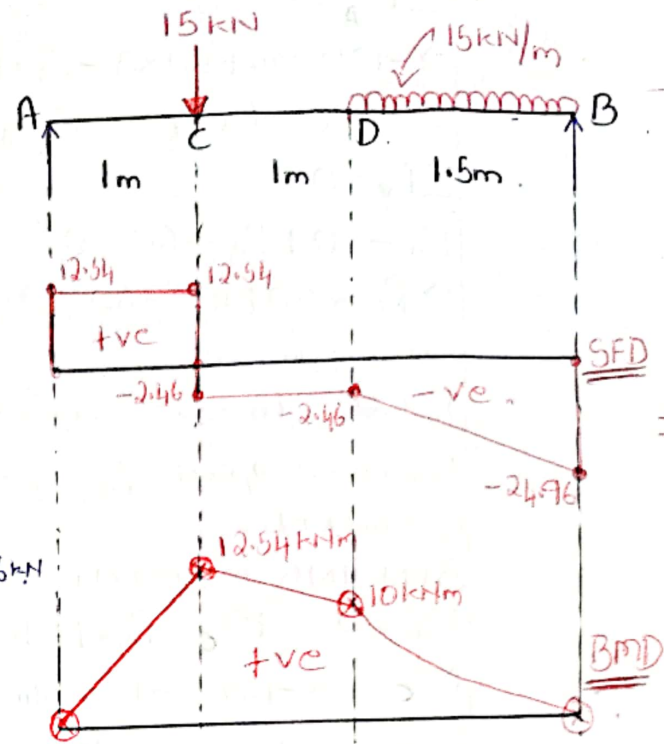 15KN
15KN/m
A
C
D
B
1m
1m
1.5m.
12.54
12.54
+ve
SFD
-2.46
-2.46
-ve.
-24.96
6KN
12.54KNm
10KNm
+ve
BMD